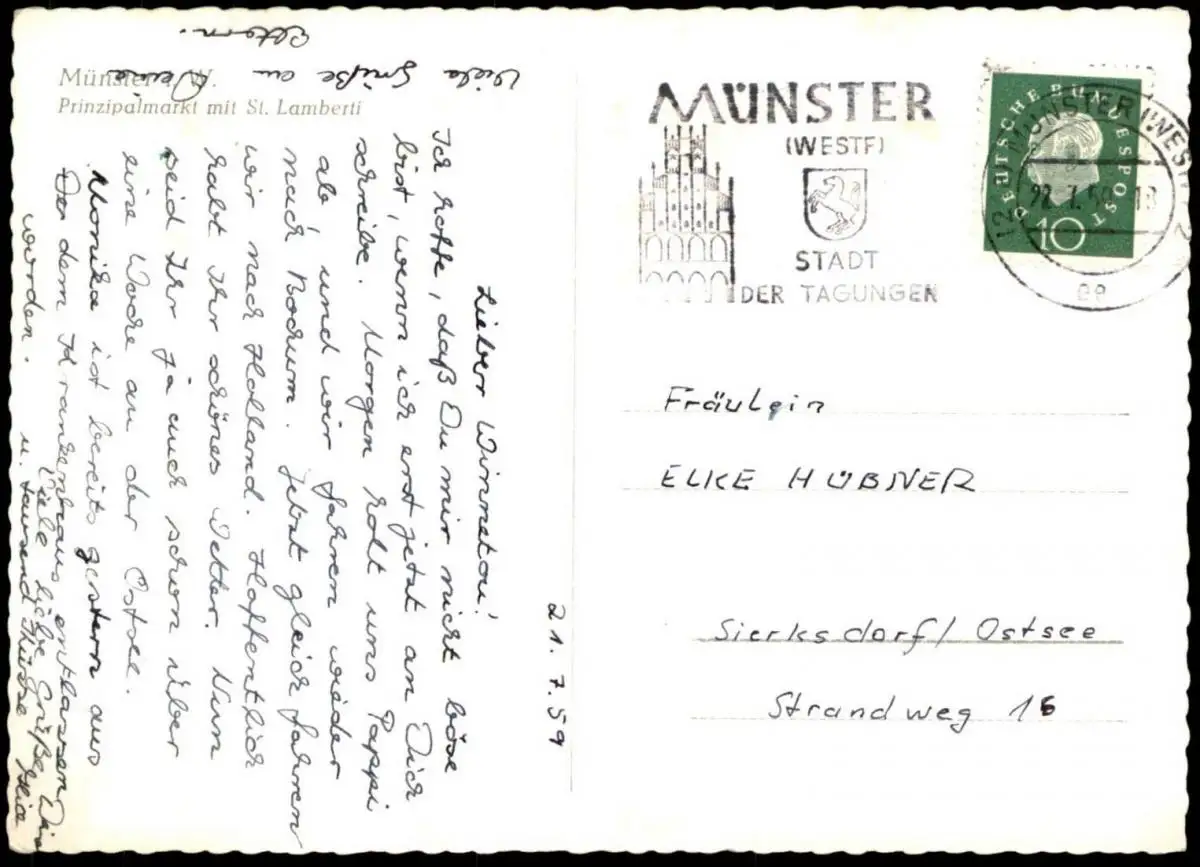 Münster i. W.
Prinzipalmarkt mit St. Lamberti
21.7.59
Lieber Winnetou!
Ich hoffe, daß Du mir nicht böse
bist, wenn ich erst jetzt an Dich
schreibe. Morgen holt uns Pappi
ab und wir fahren wieder
nach Bochum. Jetzt gleich fahren
wir nach Holland. Hoffentlich
habt Ihr schönes Wetter. Nun
seid Ihr ja auch schon über
eine Woche an der Ostsee.
Monika ist bereits gestern aus
der dem Krankenhaus entlassen
worden.
Viele liebe Grüße Deine
u. tausend Küsse
Viele Grüße an Deine
Eltern.
MÜNSTER
(WESTF)
STADT
DER TAGUNGEN
DEUTSCHE BUNDESPOST
10
MÜNSTER (WESTF) 2
22.7.59-18
ee
Fräulein
ELKE HÜBNER
Sierksdorf / Ostsee
Strandweg 16